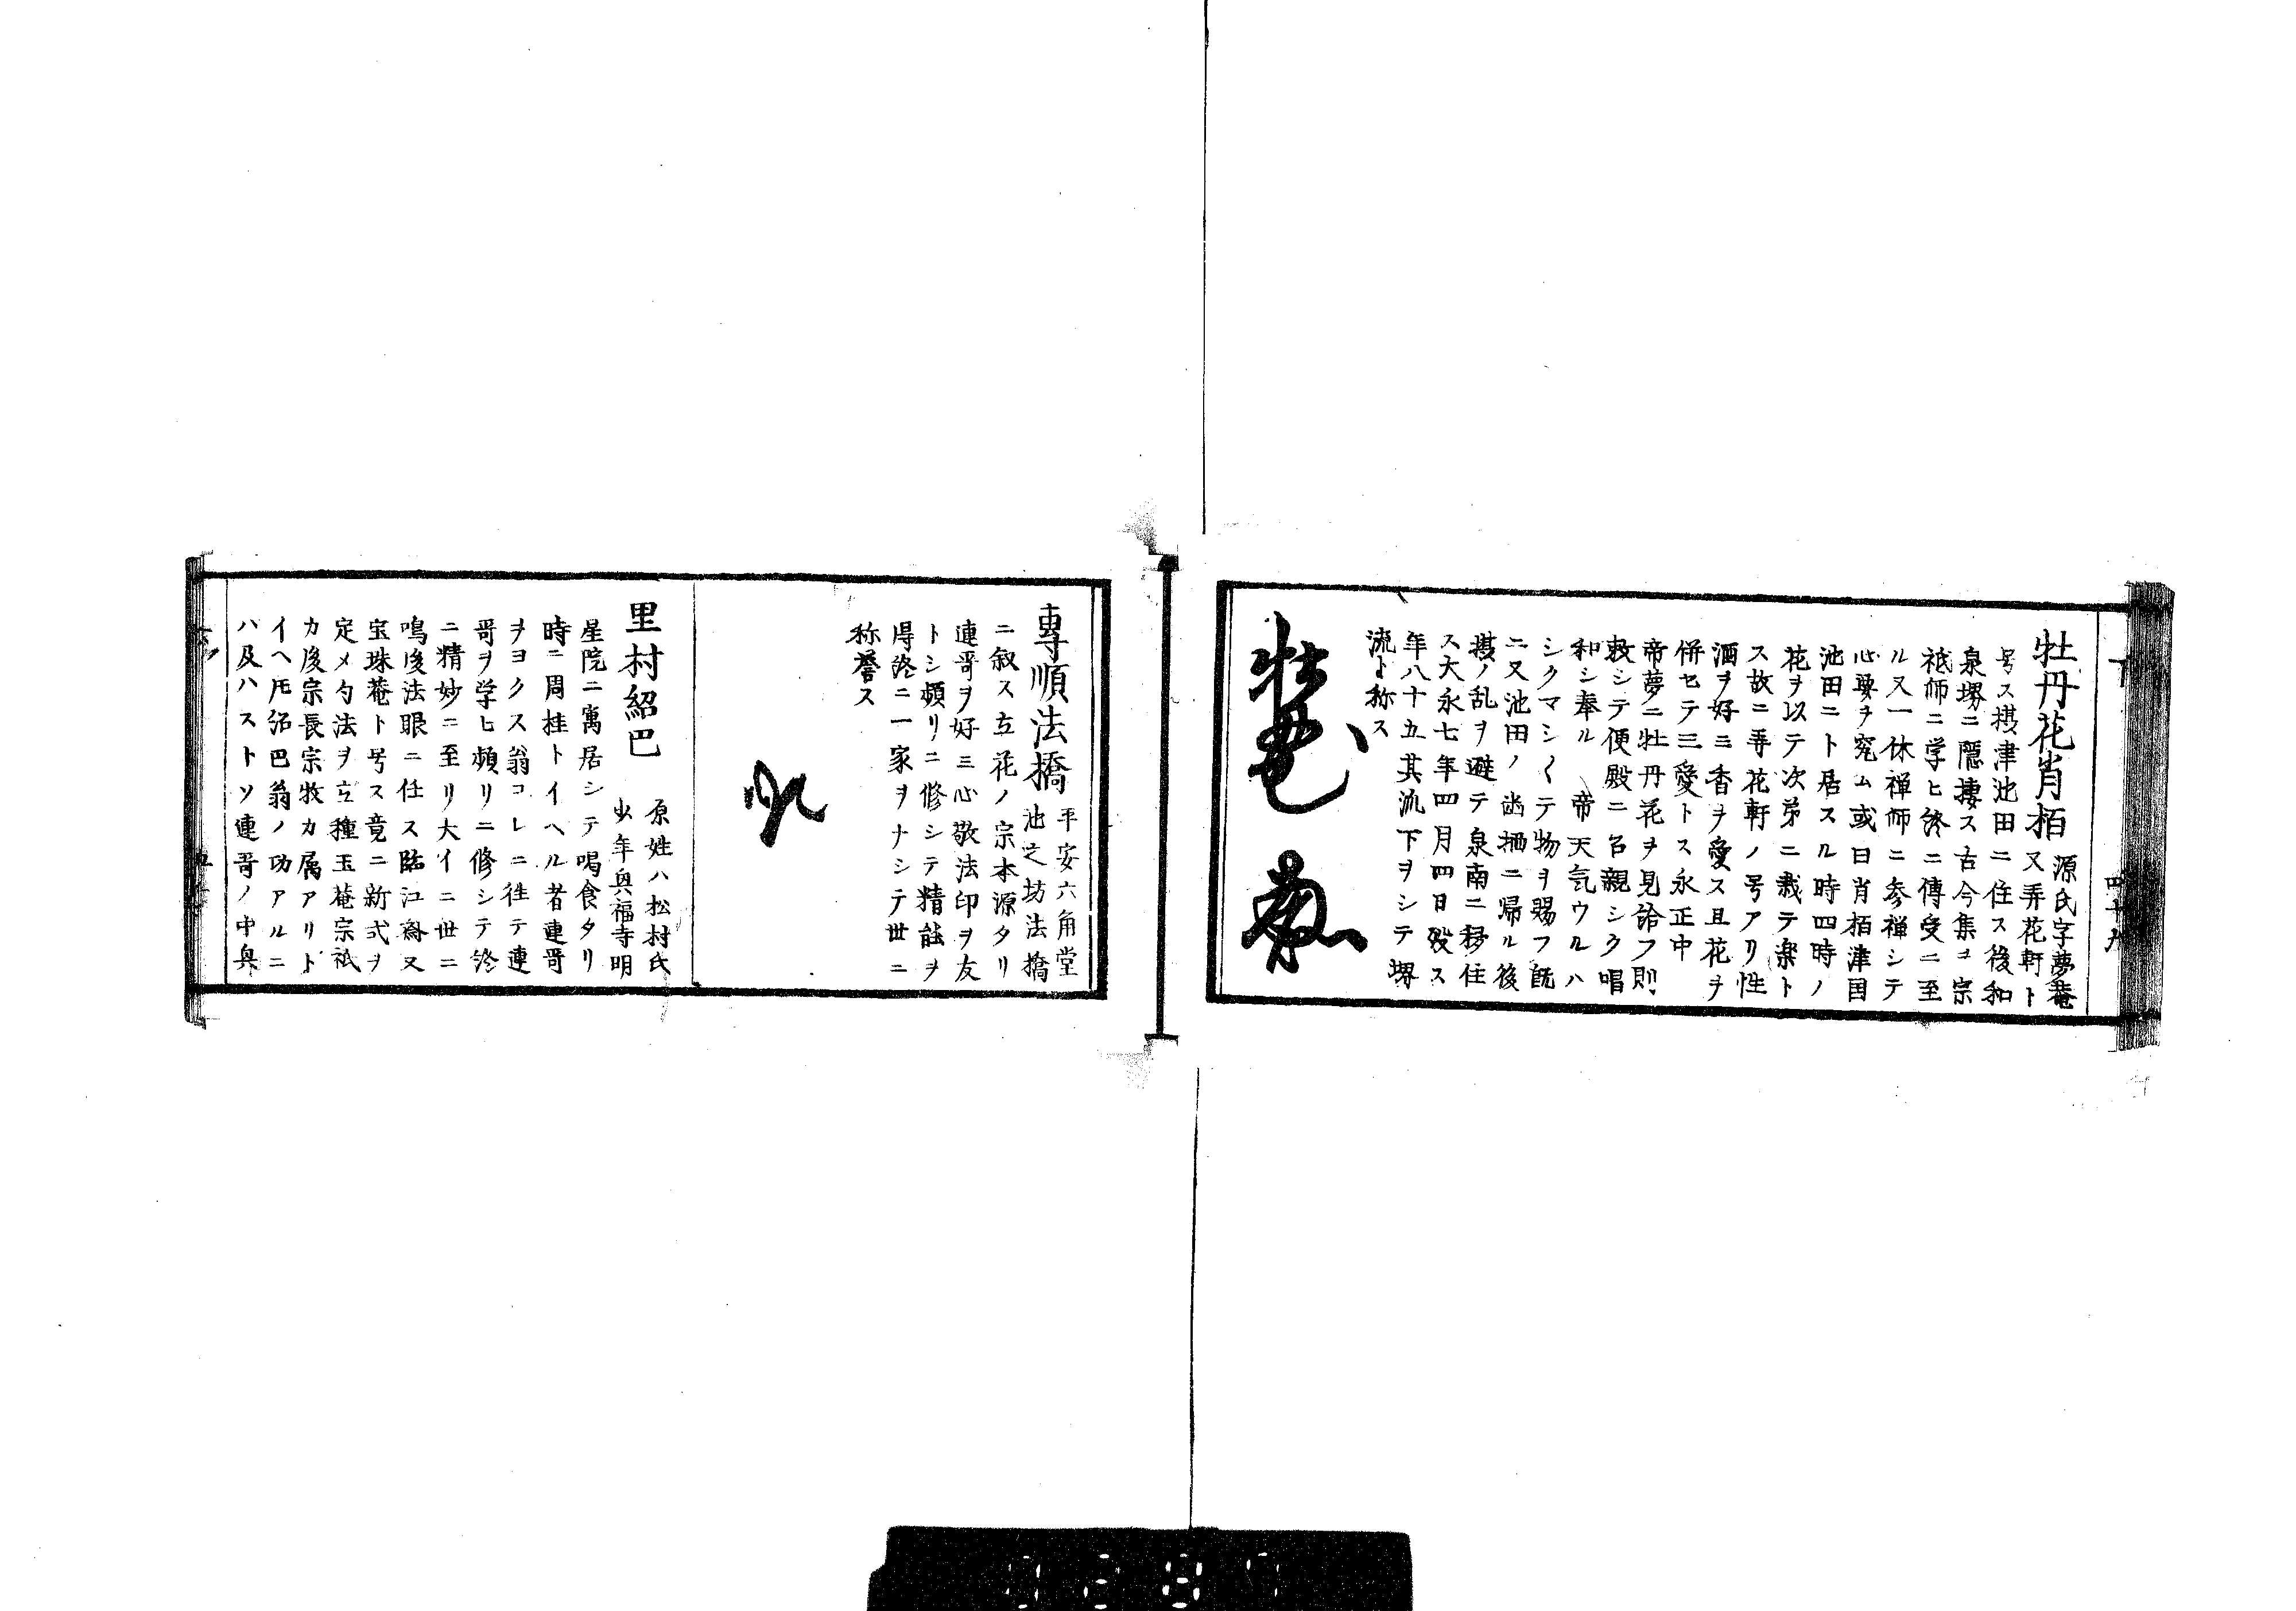 牡丹花肖栢
源氏字夢菴
又弄花軒ト
号ス摂津池田ニ住ス後和
泉堺ニ隠捿ス古今集ヲ宗
祇師ニ学ヒ終ニ傳受ニ至
ル又一休禅師ニ参禅シテ
心要ヲ究ム或曰肖栢津国
池田ニト居スル時四時ノ
花ヲ以テ次弟ニ栽テ楽ト
ス故ニ弄花軒ノ号アリ性
酒ヲ好ミ香ヲ愛ス且花ヲ
併セテ三愛トス永正中
帝夢ニ牡丹花ヲ見給フ則
敕シテ便殿ニ召親シク唱
和シ奉ル 帝天気ウルハ
シクマシ〱テ物ヲ賜フ既
ニ又池田ノ幽栖ニ帰ル後
摂ノ乱ヲ避テ泉南ニ移住
ス大永七年四月四日歿ス
年八十五其流下ヲシテ堺
流ト称ス
四十九
專順法橋
平安六角堂
池之坊法橋
ニ叙ス立花ノ宗本源タリ
連哥ヲ好ミ心敬法印ヲ友
トシ頻リニ修シテ精能ヲ
得終ニ一家ヲナシテ世ニ
称誉ス
里村紹巴
原姓ハ松村氏
少年興福寺明
星院ニ寓居シテ喝食タリ
時ニ周桂トイヘル者連哥
ヲヨクス翁コレニ従テ連
哥ヲ学ヒ頻リニ修シテ終
ニ精妙ニ至リ大イニ世ニ
鳴後法眼ニ任ス臨江斎又
宝珠菴ト号ス竟ニ新式ヲ
定メ勺法ヲ立種玉菴宗祇
カ後宗長宗牧カ属アリト
イヘ𪜈紹巴翁ノ功アルニ
ハ及ハストソ連哥ノ中興